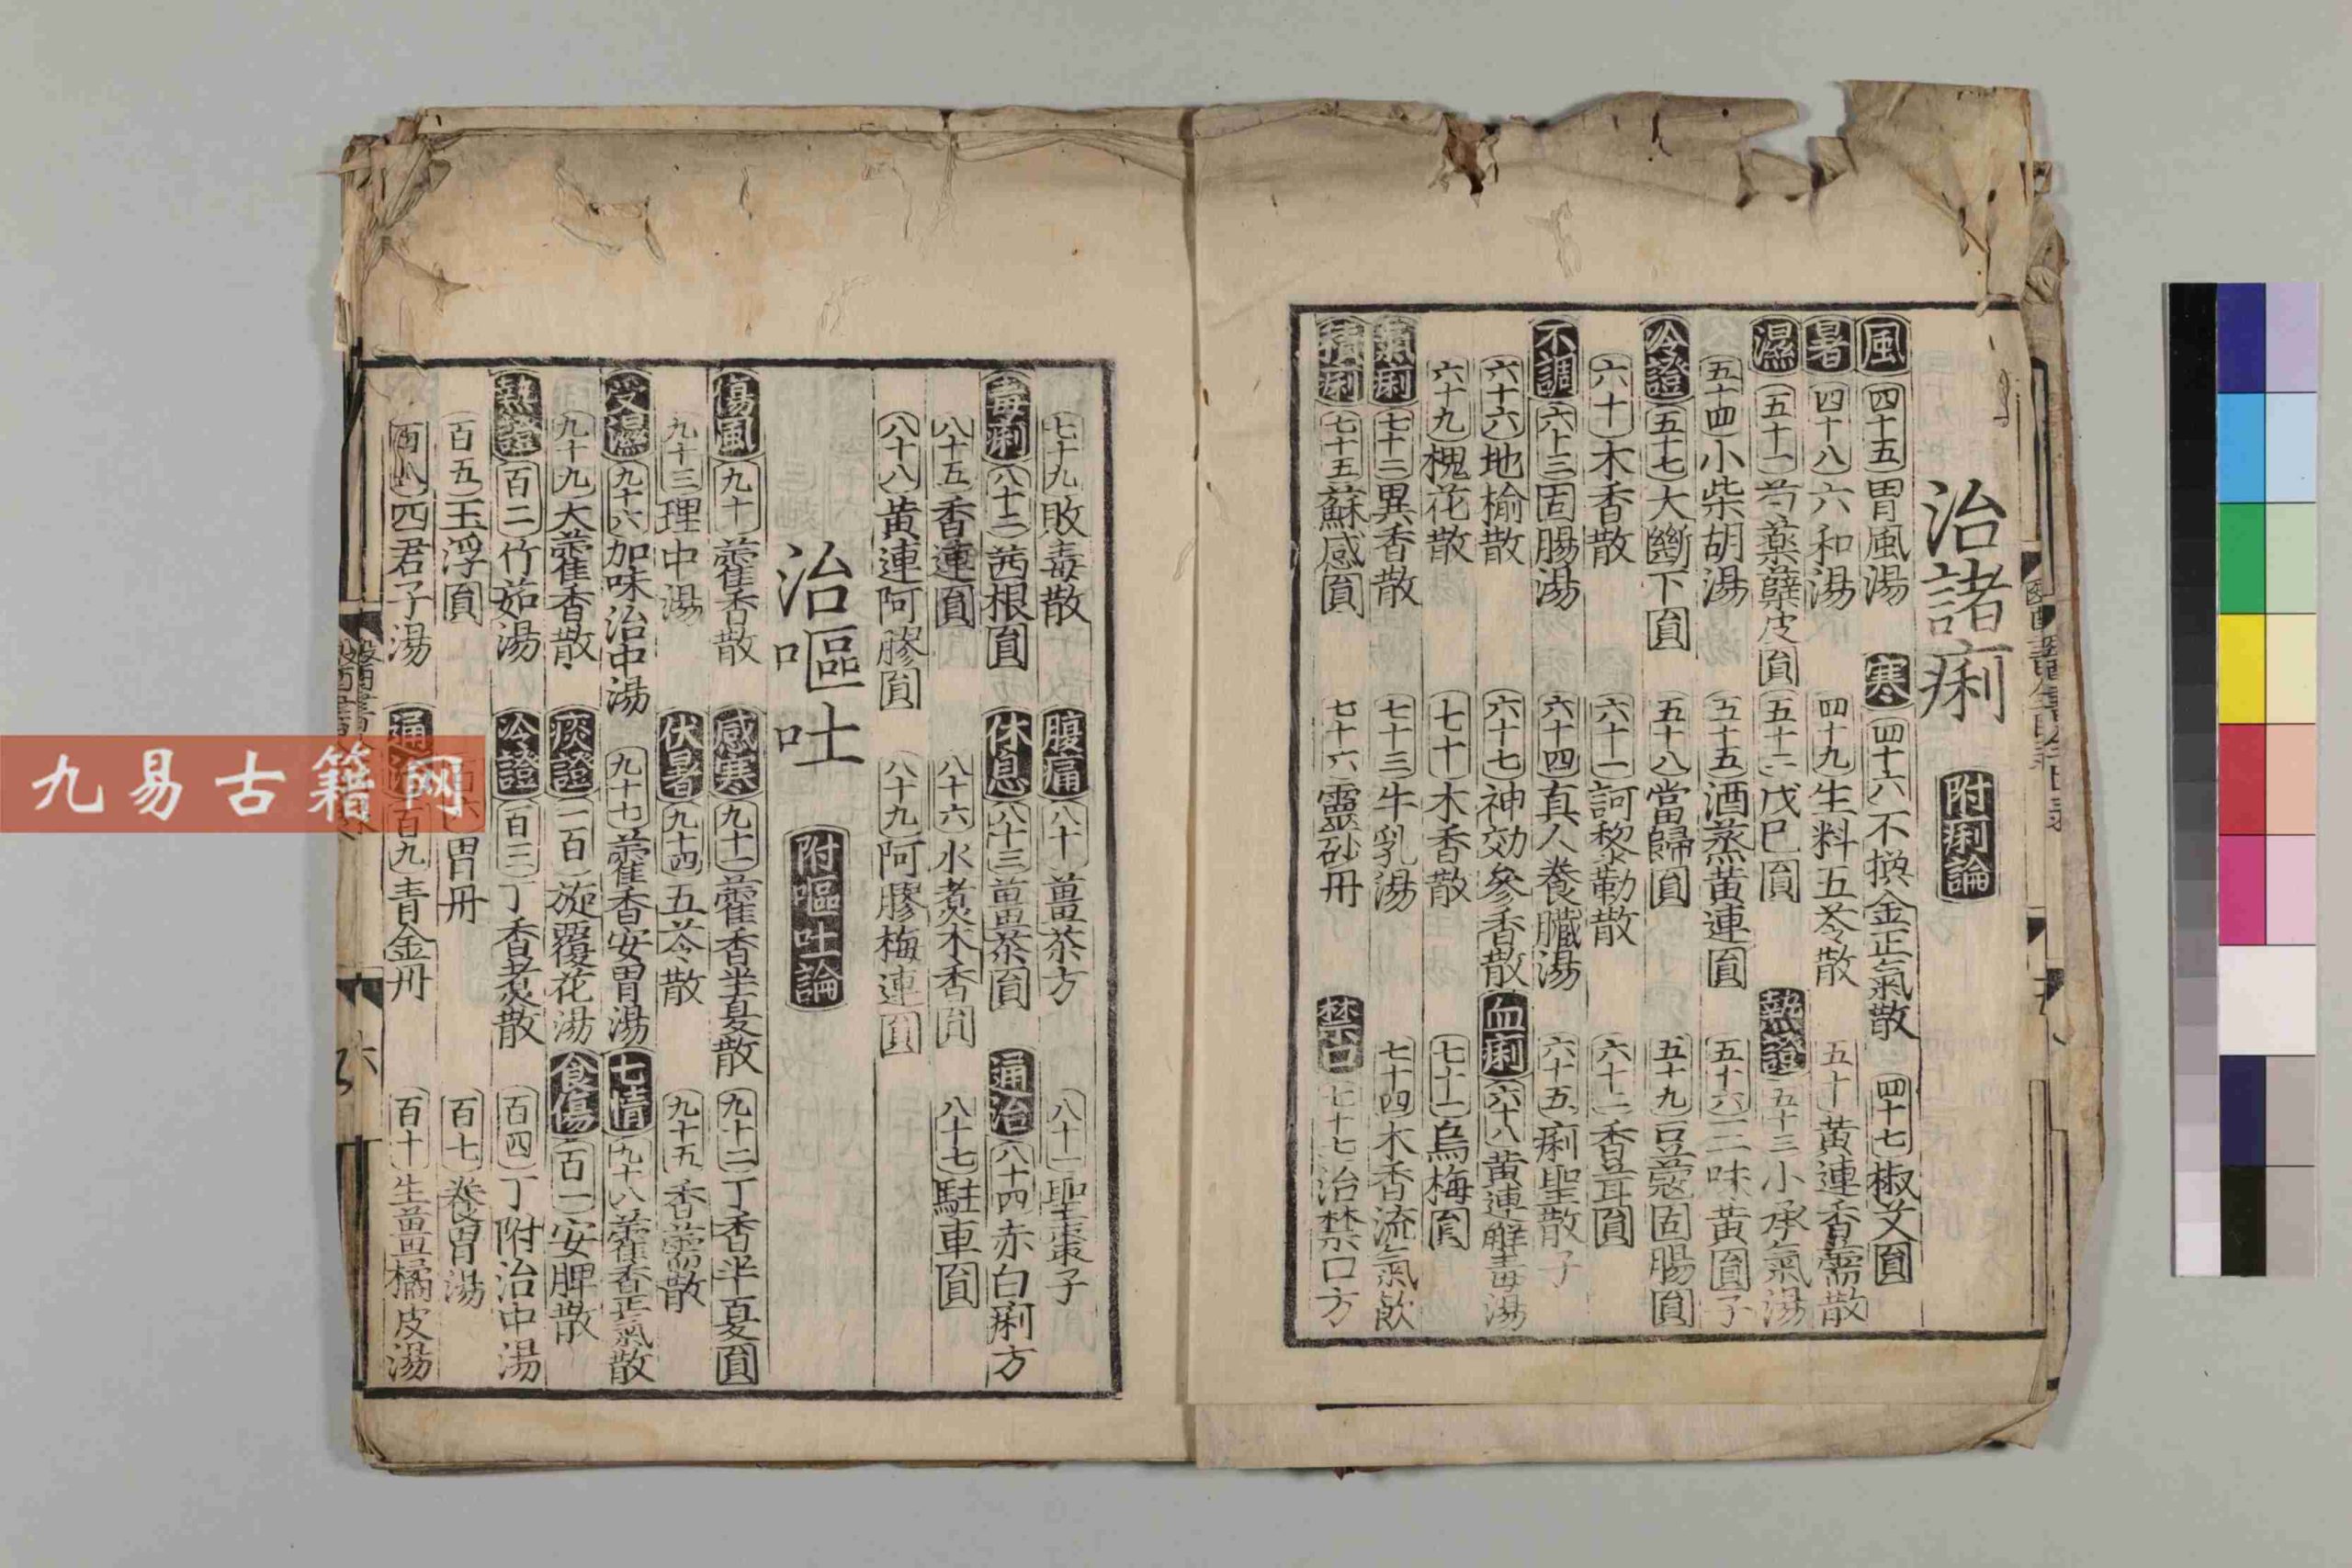 治諸痢 附痢論
風 四十五 胃風湯 寒 四十六 不換金正氣散 四十七 椒艾圓
暑 四十八 六和湯 四十九 生料五苓散 五十 黃連香薷散
濕 五十一 芍藥蘖皮圓 五十二 戊巳圓 熱證 五十三 小承氣湯
五十四 小柴胡湯 五十五 酒蒸黃連圓 五十六 三味黃圓子
冷證 五十七 大斷下圓 五十八 當歸圓 五十九 豆蔻固腸圓
六十 木香散 六十一 訶黎勒散 六十二 香茸圓
不調 六十三 固腸湯 六十四 真人養臟湯 六十五 痢聖散子
六十六 地榆散 六十七 神効參香散 血痢 六十八 黃連解毒湯
六十九 槐花散 七十 木香散 七十一 烏梅圓
氣痢 七十二 異香散 七十三 牛乳湯 七十四 木香流氣飲
積痢 七十五 蘇感圓 七十六 靈砂丹 禁口 七十七 治禁口方
七十九 敗毒散 腹痛 八十 薑茶方 八十一 聖棗子
毒痢 八十二 茜根圓 休息 八十三 薑茶圓 通治 八十四 赤白痢方
八十五 香連圓 八十六 水煮木香圓 八十七 駐車圓
八十八 黃連阿膠圓 八十九 阿膠梅連圓
治嘔吐 附嘔吐論
傷風 九十 藿香散 感寒 九十一 藿香半夏散 九十二 丁香半夏圓
九十三 理中湯 伏暑 九十四 五苓散 九十五 香薷散
受濕 九十六 加味治中湯 九十七 藿香安胃湯 七情 九十八 藿香正氣散
九十九 大藿香散 痰證 一百 旋覆花湯 食傷 百一 安脾散
熱證 百二 竹茹湯 冷證 百三 丁香煮散 百四 丁附治中湯
百五 玉浮圓 百六 胃丹 百七 養胃湯
百八 四君子湯 通治 百九 青金丹 百十 生薑橘皮湯
九易古籍网